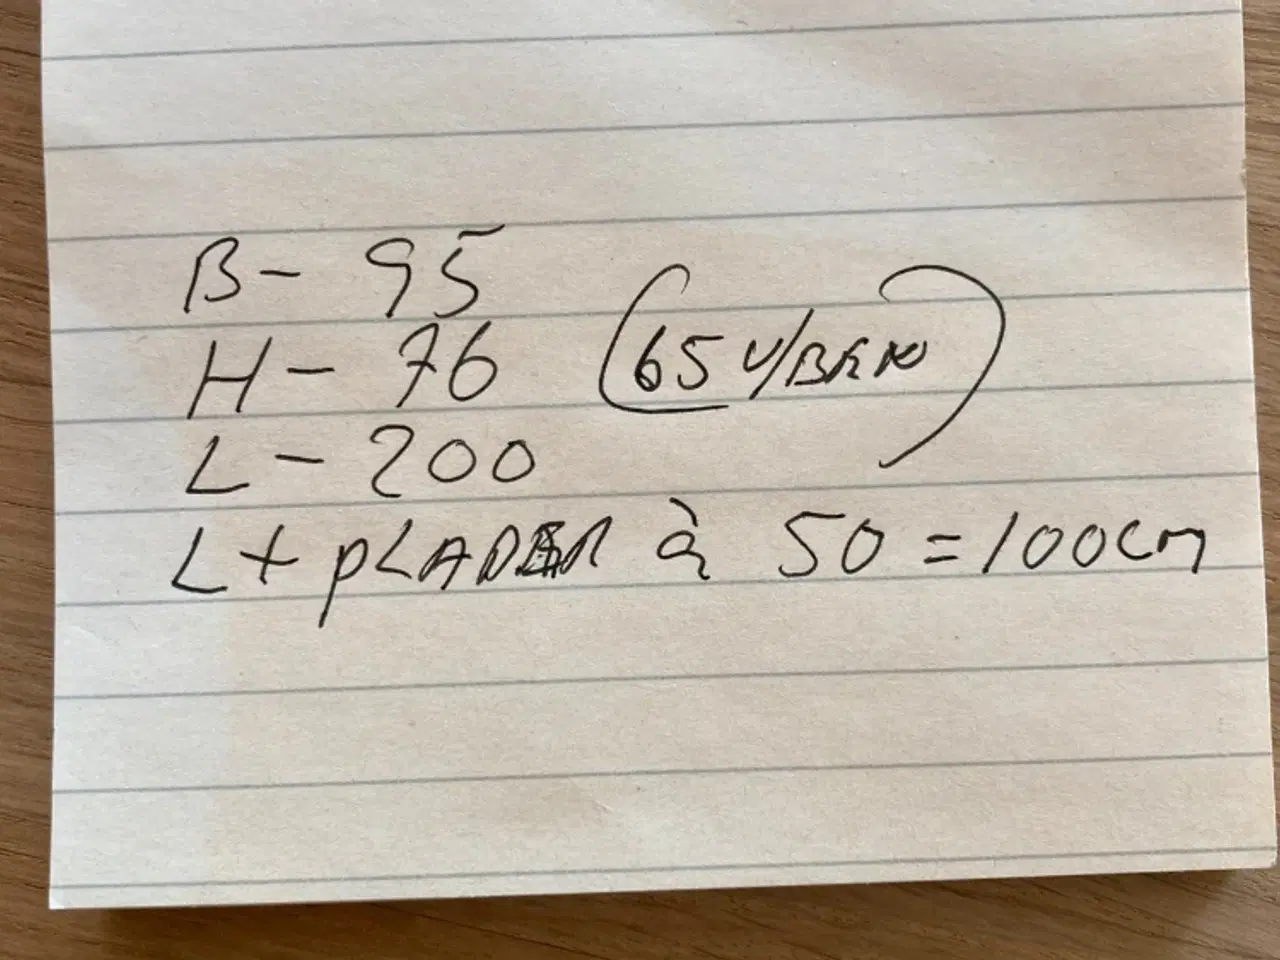 B - 95
H - 76 (65 V/BEN)
L - 200
L + PLADER à 50 = 100cm